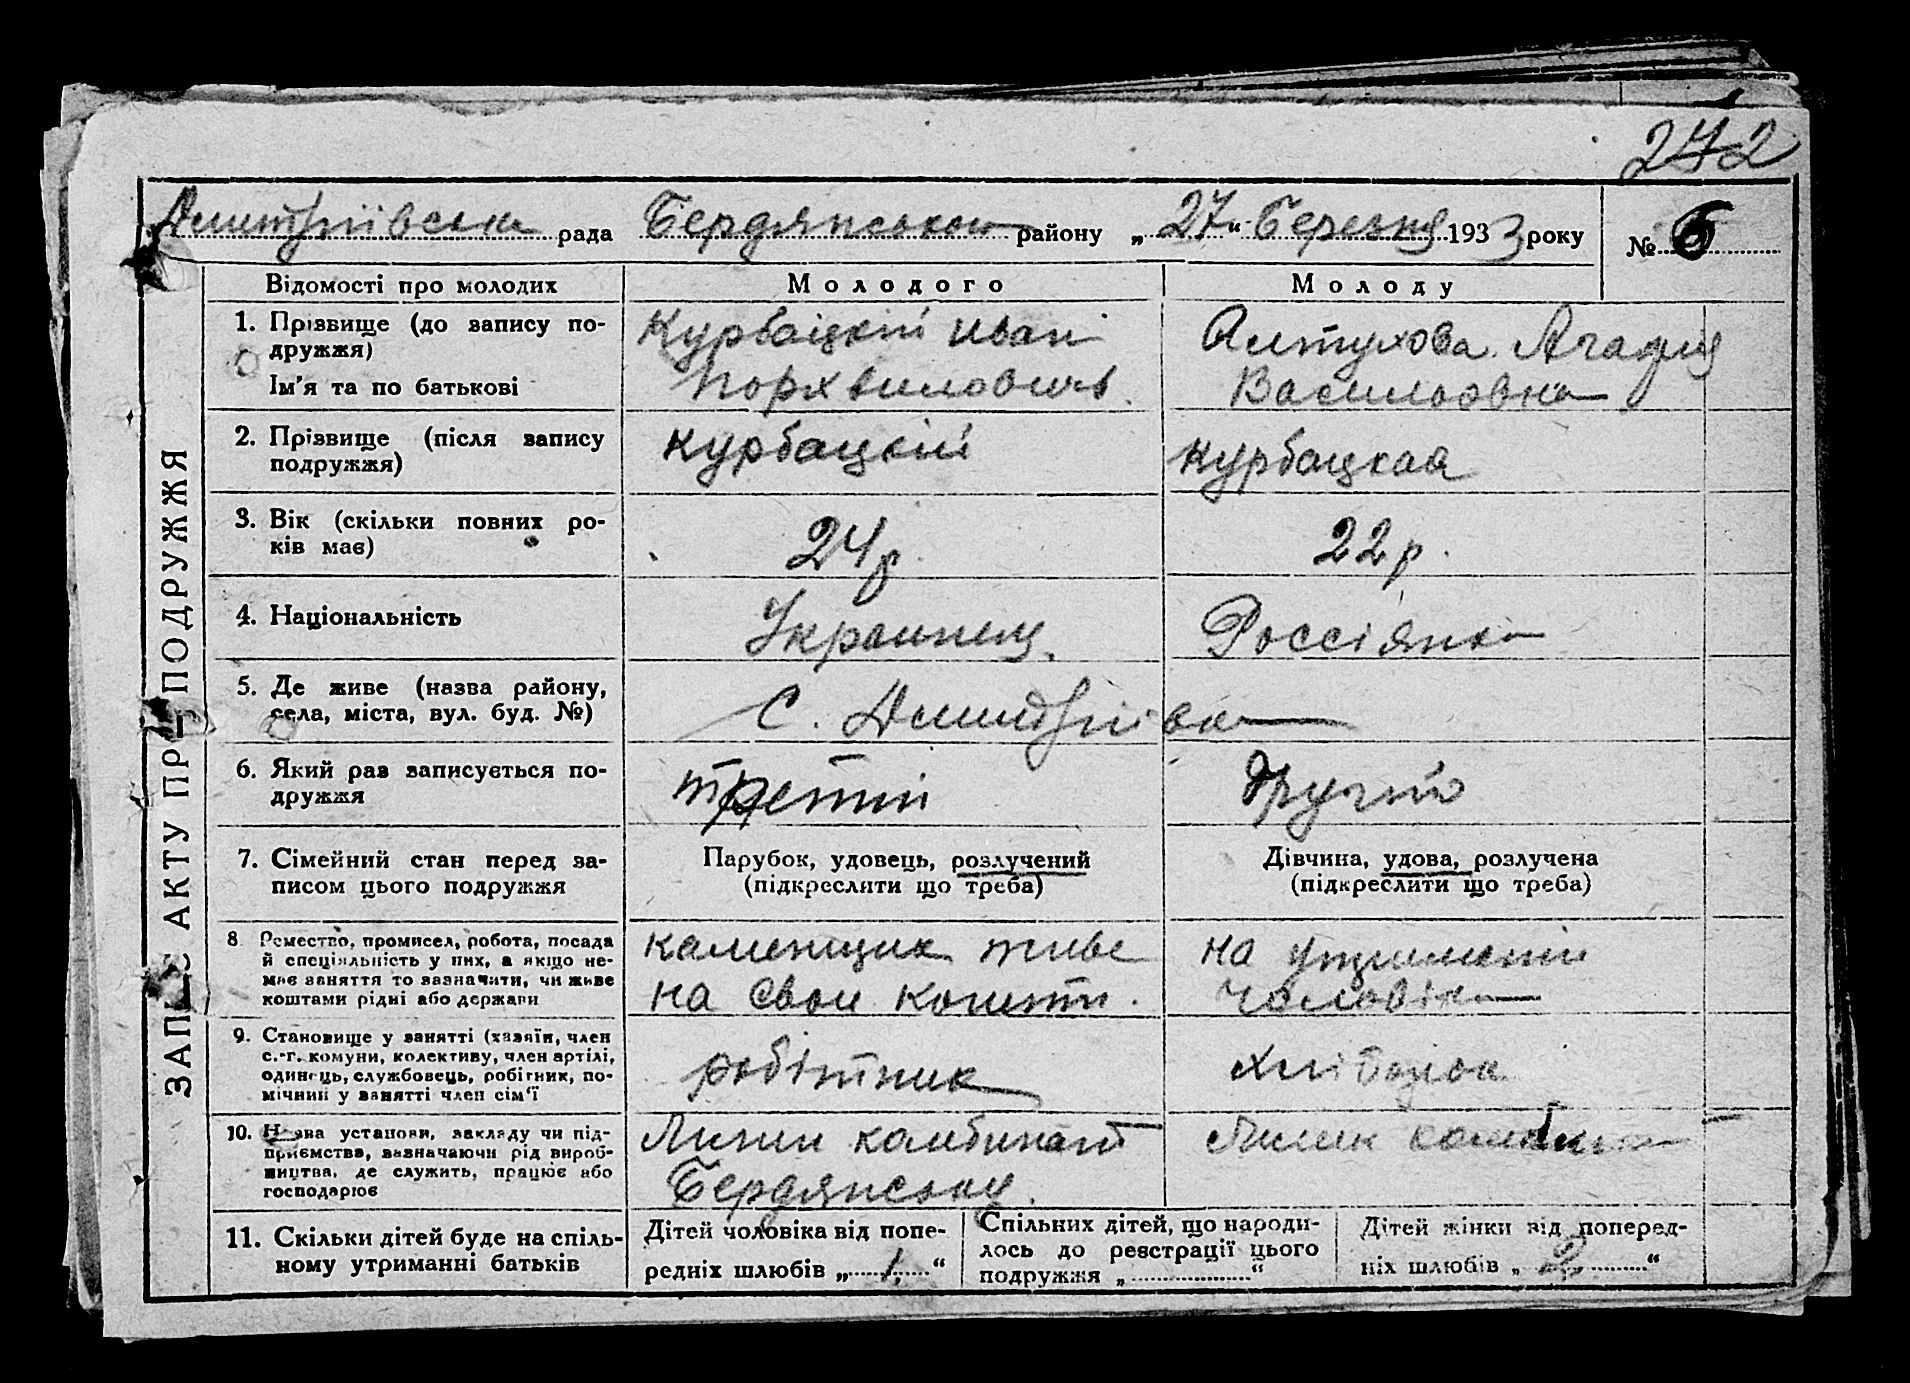 242
Дмитріївська рада Бердянського району „27“ Березня 1933 року № 6
ЗАПИС АКТУ ПРО ПОДРУЖЖЯ
Відомості про молодих Молодого Молоду
1. Прізвище (до запису по-
дружжя)
Ім'я та по батькові
Курбацкій Иван
Порхвилович
Алтухова Агафия
Васильовна
2. Прізвище (після запису
подружжя)
Курбацкій
Курбацкая
3. Вік (скільки повних ро-
ків має)
24 р
22 р.
4. Національність
Украинец
Россіянка
5. Де живе (назва району,
села, міста, вул. буд. №)
С. Дмитріівка
6. Який раз записується по-
дружжя
третій
другий
7. Сімейний стан перед за-
писом цього подружжя
Парубок, удовець, розлучений
(підкреслити що треба)
Дівчина, удова, розлучена
(підкреслити що треба)
8. Ремество, промисел, робота, посада
й спеціяльність у них, а якщо не-
має заняття то зазначити, чи живе
коштами рідні або держави
каменщик живе
на свои кошти.
на утриманні
чоловіка
9. Становище у занятті (хазяїн, член
с.-г. комуни, колективу, член артілі,
одинець, службовець, робітник, по-
мічний у занятті член сім'ї
робітник
10. Назва установи, закладу чи під-
приємства, зазначаючи рід вироб-
ництва, де служить, працює або
господарює
комбинат
11. Скільки дітей буде на спіль-
ному утриманні батьків
Дітей чоловіка від попе-
редніх шлюбів „ 1 “
Спільних дітей, що народи-
лось до реєстрації цього
подружжя „ “
Дітей жінки від поперед-
ніх шлюбів „ 2 “